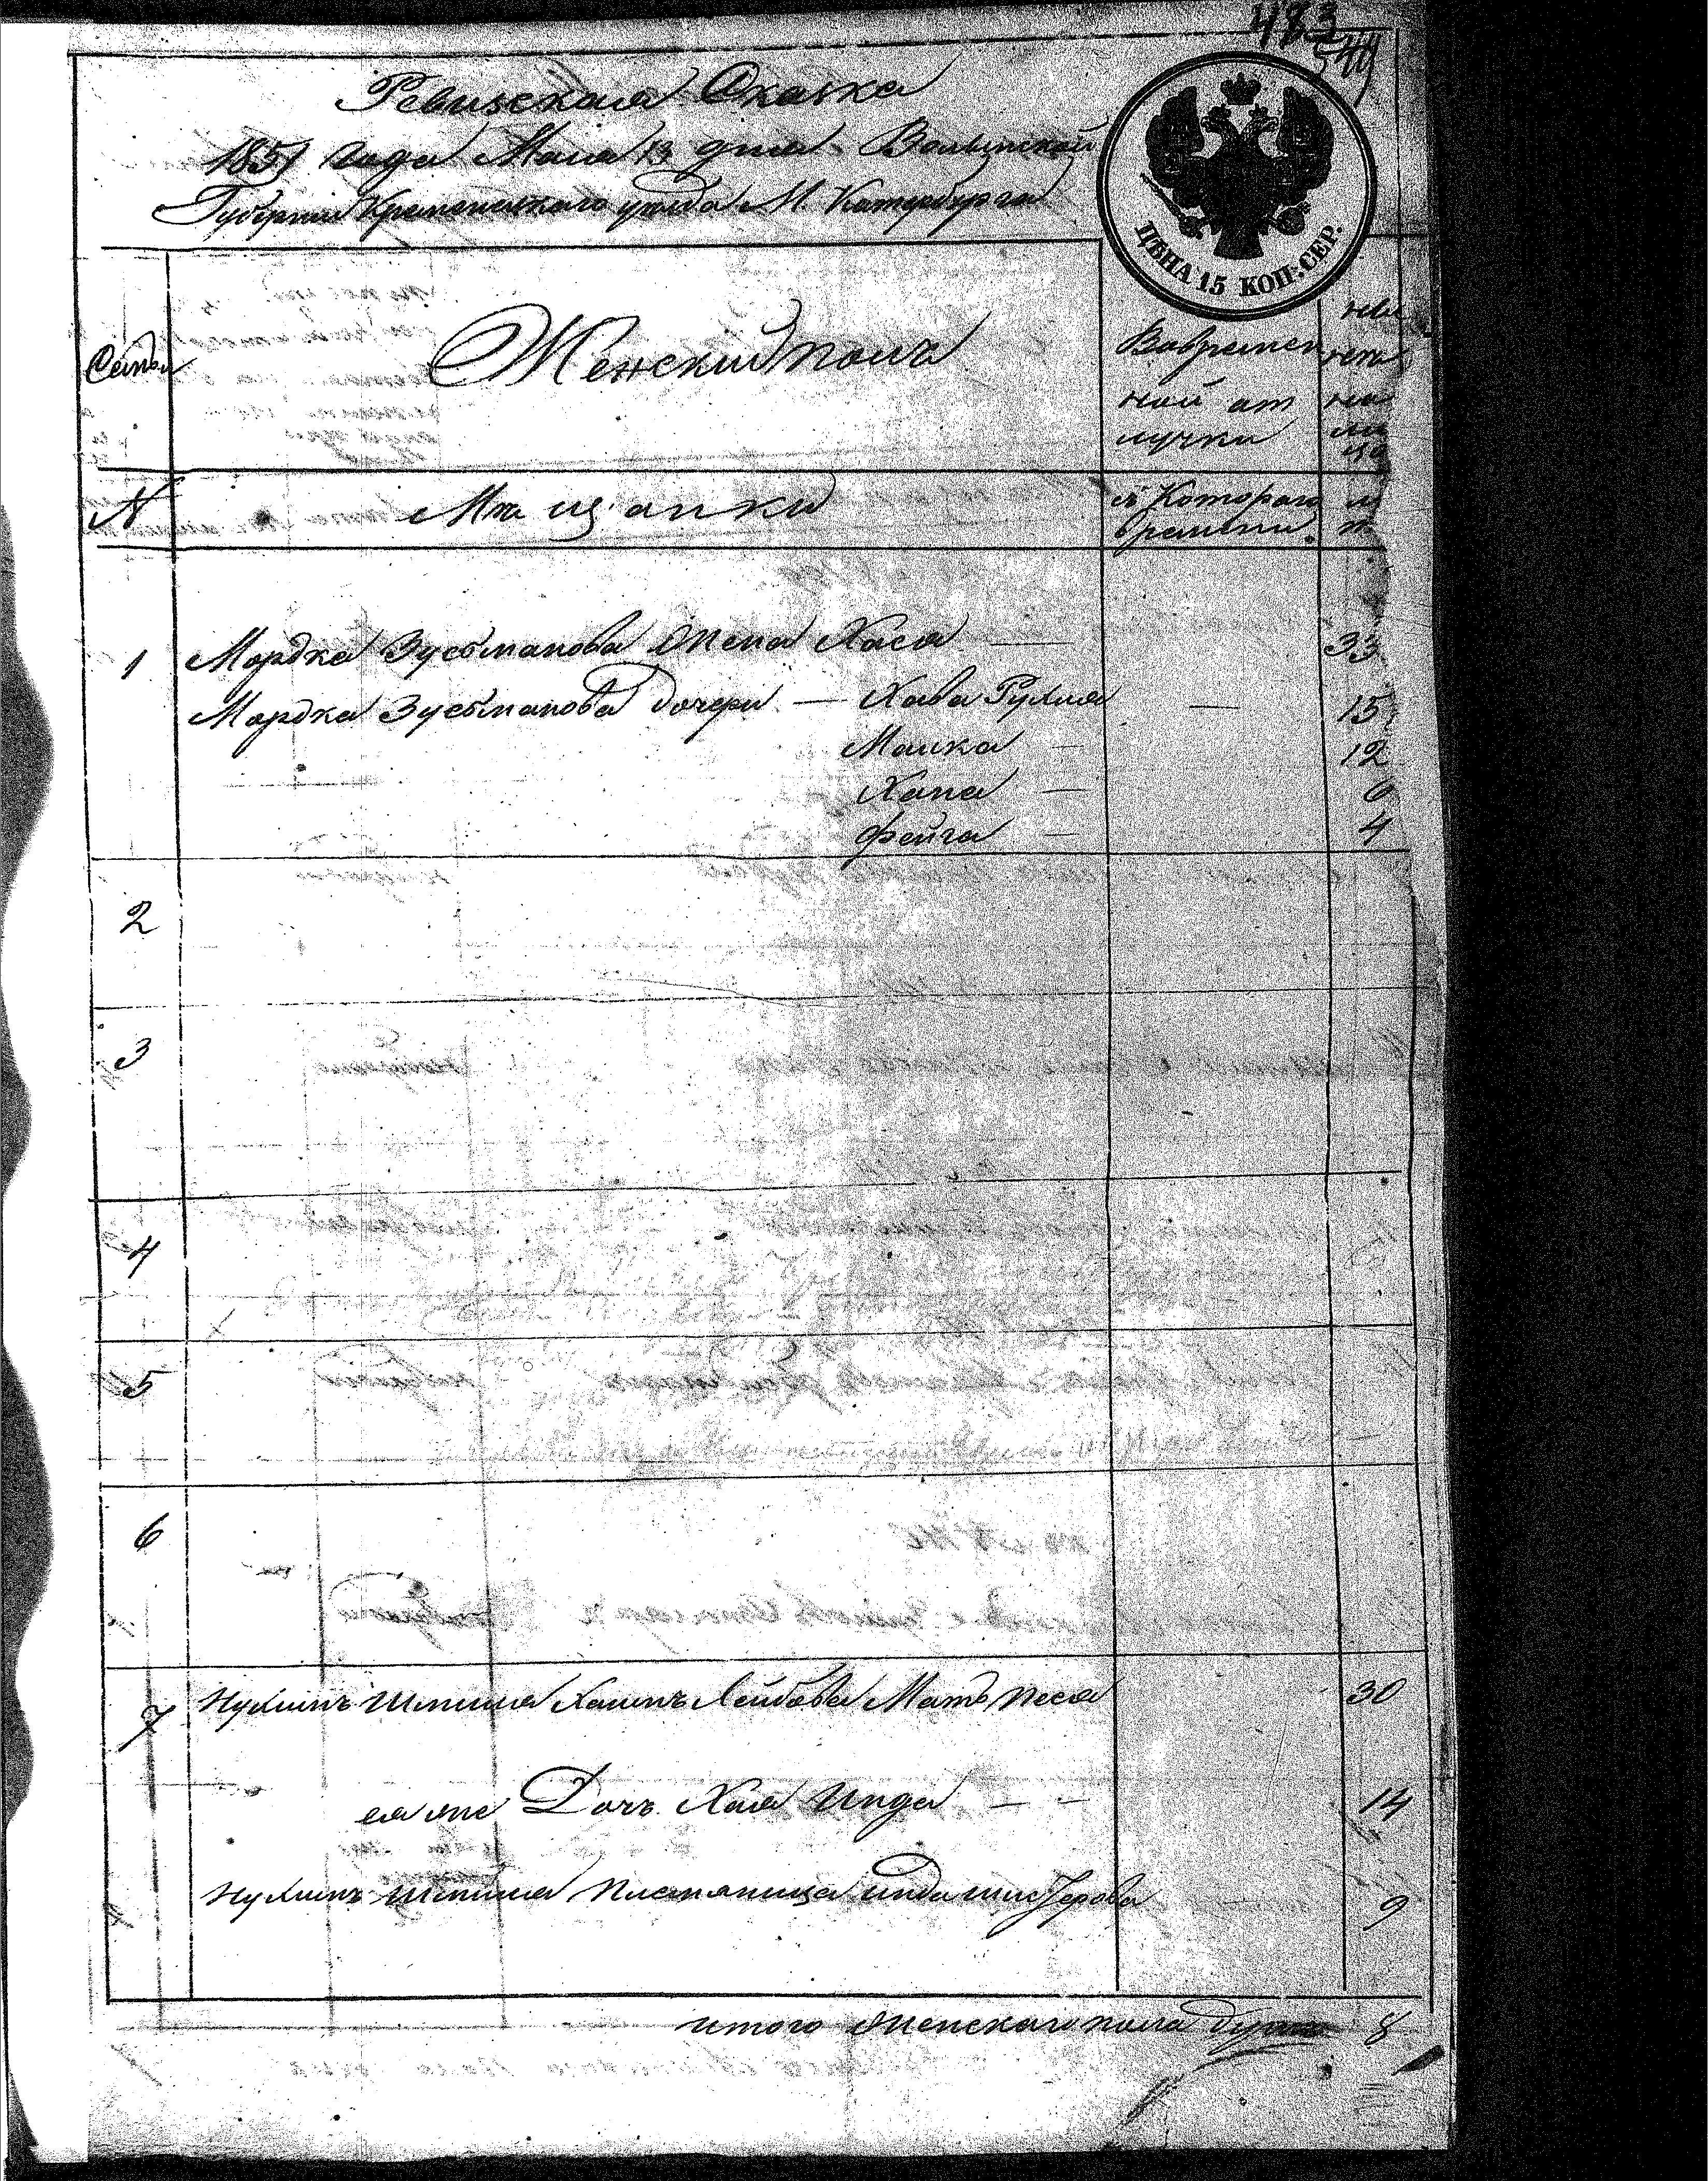 483
544
Ревизская Сказка
1851 года Мая 13 дня Волынской
Губернии Кременецкаго уезда М. Катербурга
ЦѢНА 15 КОП: СЕР.
Семьи
Женский полъ
Вовремен
ной от
лучки
ны
не
ли
N
Мещанки
съ Котораго
времени.
1 Мордка Зусьманова Жена Хася — 33
Мордка Зусьманова дочери — Хава Рухля — 15
Малка — 12
Хана — 6
Фейга — 4
2
3
4
5
6
7 Нухимъ Шмиля Хаимъ Лейбова Мать Песя 30
ея же Дочь Хая Инда — — 14
Нухимъ Шмиля Племяница Инда 9
итого Женскаго пола душъ 8